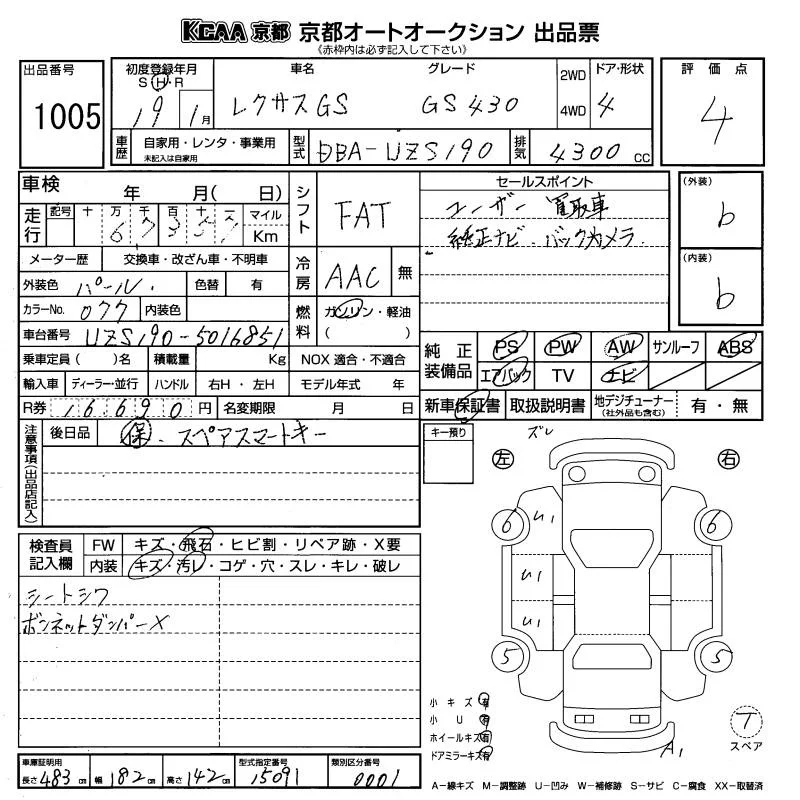 KCAA 京都 京都オートオークション 出品票
《赤枠内は必ず記入して下さい》
出品番号 1005
初度登録年月 S H R 19 1月
車名 レクサスGS
グレード GS430
2WD 4WD
ドア・形状 4
評価点 4
車歴 自家用・レンタ・事業用 未記入は自家用
型式 DBA-UZS190
排気 4300 CC
車検 年 月( 日)
走行 記号 十 万 千 百 十 一 6 7 3 5 マイル Km
メーター歴 交換車・改ざん車・不明車
外装色 パール 色替 有
カラーNo. 077 内装色
車台番号 UZS190-5016851
乗車定員 ( )名 積載量 Kg NOX 適合・不適合
輸入車 ディーラー・並行 ハンドル 右H・左H モデル年式 年
R券 16690 円 名変期限 月 日
シフト FAT
冷房 AAC 無
燃料 ガソリン・軽油 ( )
セールスポイント
ユーザー買取車
純正ナビ・バックカメラ
(外装) b
(内装) b
純正装備品 PS PW AW サンルーフ ABS
エアバック TV ナビ
新車保証書 取扱説明書 地デジチューナー (社外品も含む) 有・無
注意事項(出品店記入)
後日品 保・スペアスマートキー
キー預り
検査員記入欄
FW キズ・飛石・ヒビ割・リペア跡・X要
内装 キズ・汚レ・コゲ・穴・スレ・キレ・破レ
シートシワ
ボンネットダンパーX
ズレ
左 右
6 U1 6
U1
U1
5 5
小キズ 有
小U 有
ホイールキズ 有
ドアミラーキズ 有
A1
T
スペア
車庫証明用 長さ 483 cm 幅 182 cm 高さ 142 cm
型式指定番号 15091
類別区分番号 0001
A-線キズ M-調整跡 U-凹み W-補修跡 S-サビ C-腐食 XX-取替済